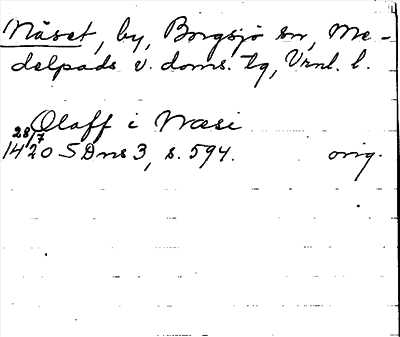 Näset, by, Borgsjö sn, Me-
delpads v. doms. tg, Vrnl. l.
Olaff i Næsi
28/7
1420 SDns 3, s. 594. orig.